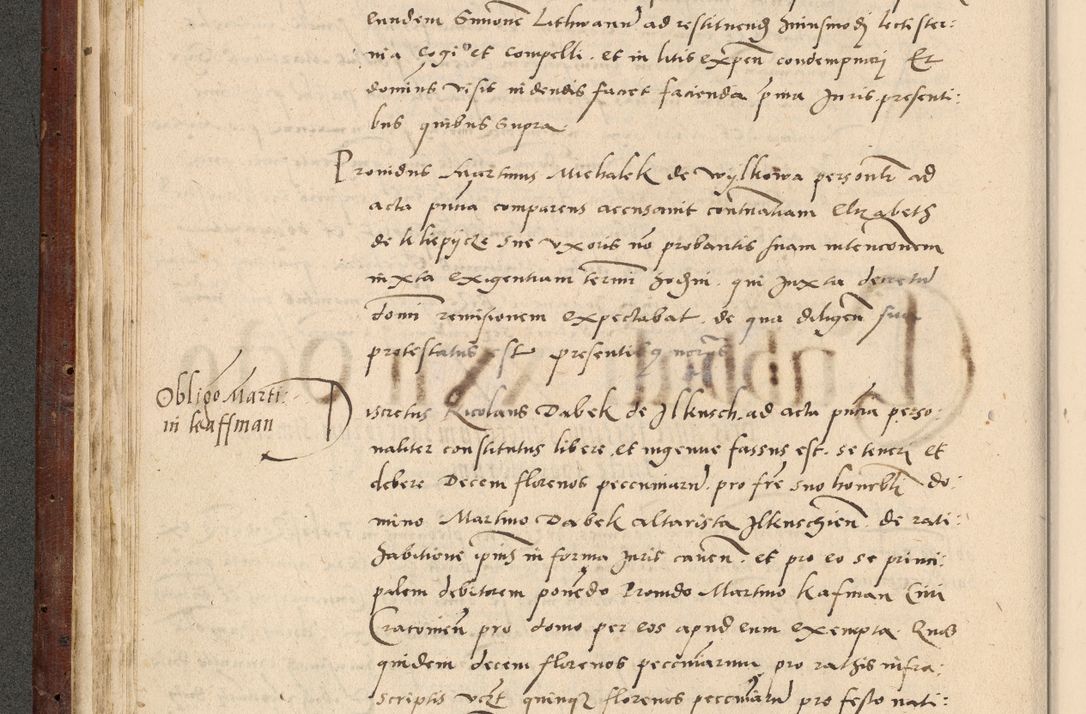 eundem Simonē Lethwanń ad restituend huiusmodi lectister:
nia cogi et compelli. et in litis expeń condempnari Et
dominus visis videndis facret facienda pñia Juris. presenti:
bus quibus Supra.
Providus Martinus Michalek de Wylkowa persontr ad
acta pñtia comparens accusavit contuatiam Elizabeth
de sue uxoris nō probantis suam intencōnem
iuxta exigentiam termi hodiń. qui Juxta decretū
domī remisionem expectabat. de qua diligeń sua
protestatus est presentibȝ
Obligo Marti:
ni kauffman
Discretus Nicolaus Dabek de Ilkusch. ad acta pñtia perso:
naliter constitutus libere. et ingenue fassus est. se teneri et
debere Decem florenos peccuniarū. pro frē suo honrbli do:
mino Martino Dabek altarista Ilkuschień. de rati:
habitione ipsius in forma Juris caveń. et pro eo se princi:
palem debitorem ponēdo Provido Martino kafman Civi
Cracovień pro domo per eos apud eum exempta. Quos
quidem decem florenos peccuniarum pro rathis infra:
scriptis vczt quinqȝ florenos peccuniarū pro festo nati: